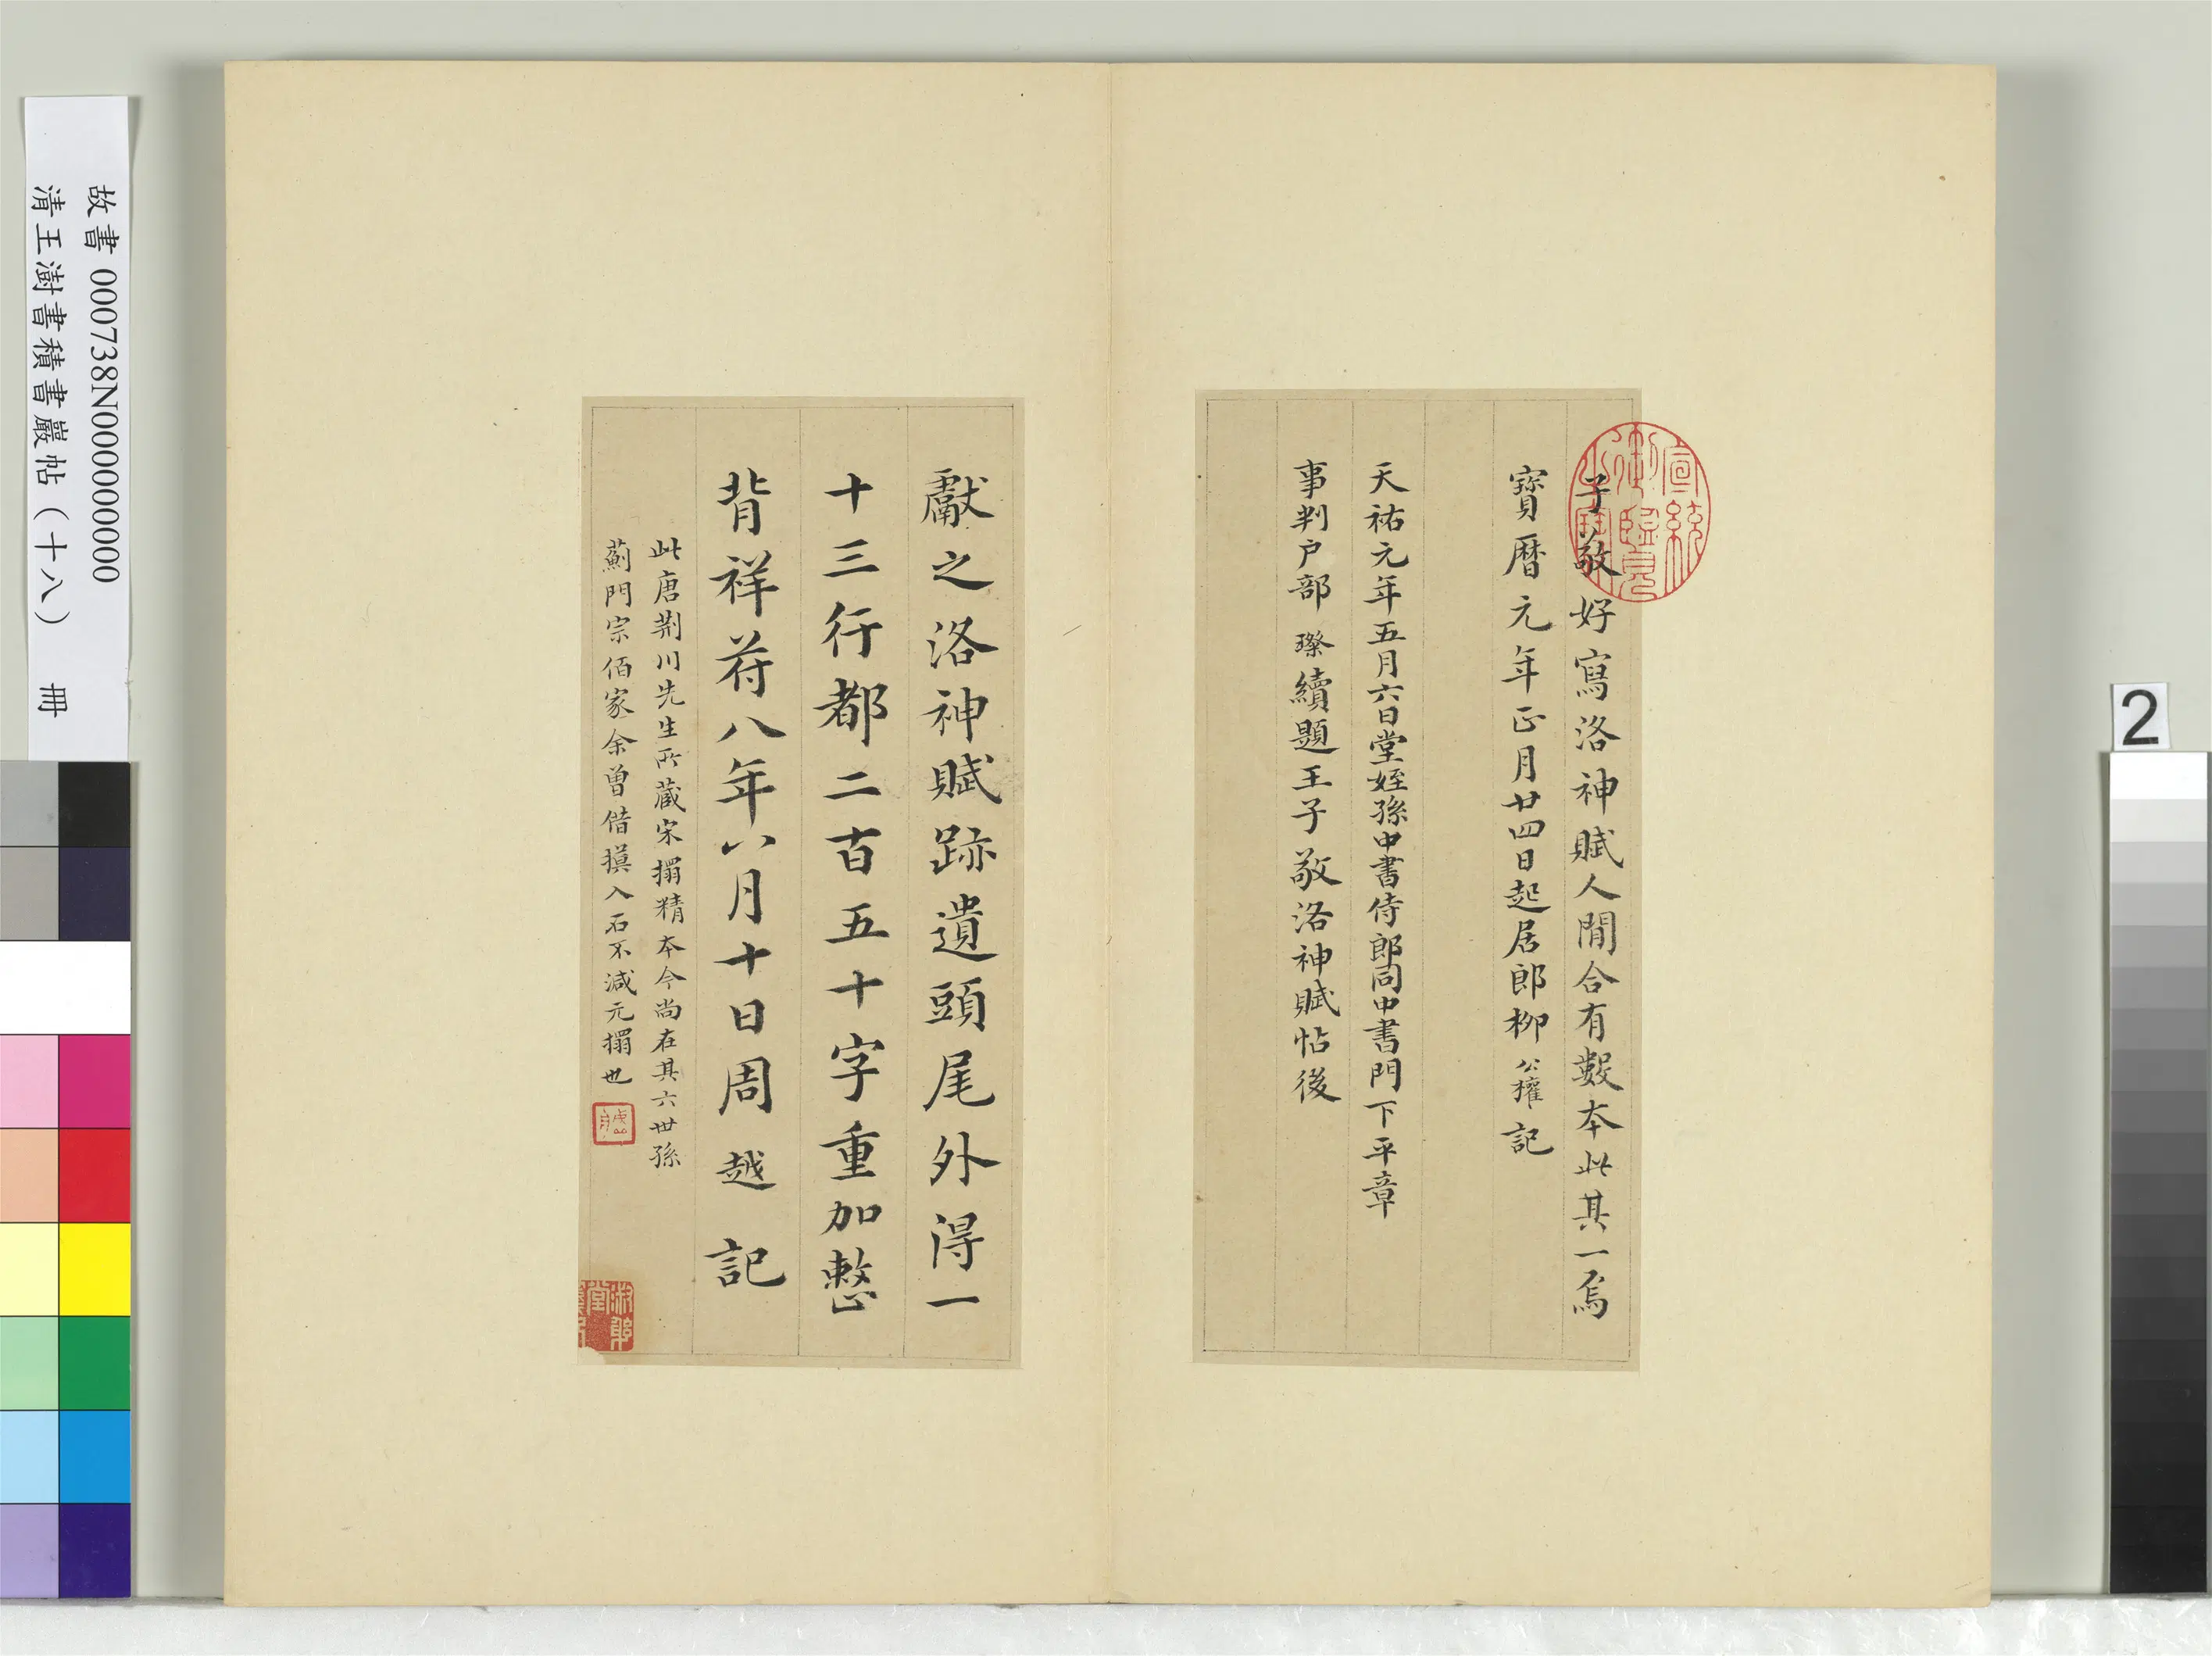 子敬好寫洛神賦人間合有數本此其一焉
寶曆元年正月廿四日起居郎柳公權記
天祐元年五月六日堂姪孫中書侍郎同中書門下平章
事判户部 璨續題王子敬洛神賦帖後
宣統御覽之寶
獻之洛神賦跡遺頭尾外得一
十三行都二百五十字重加整
背祥符八年八月十日周越記
此唐荆川先生所藏宋搨精本今尚在其六世孫
薊門宗伯家余曾借摸入石不減元搨也
故書 000738N000000000
清王澍書積書巖帖(十八) 冊
2